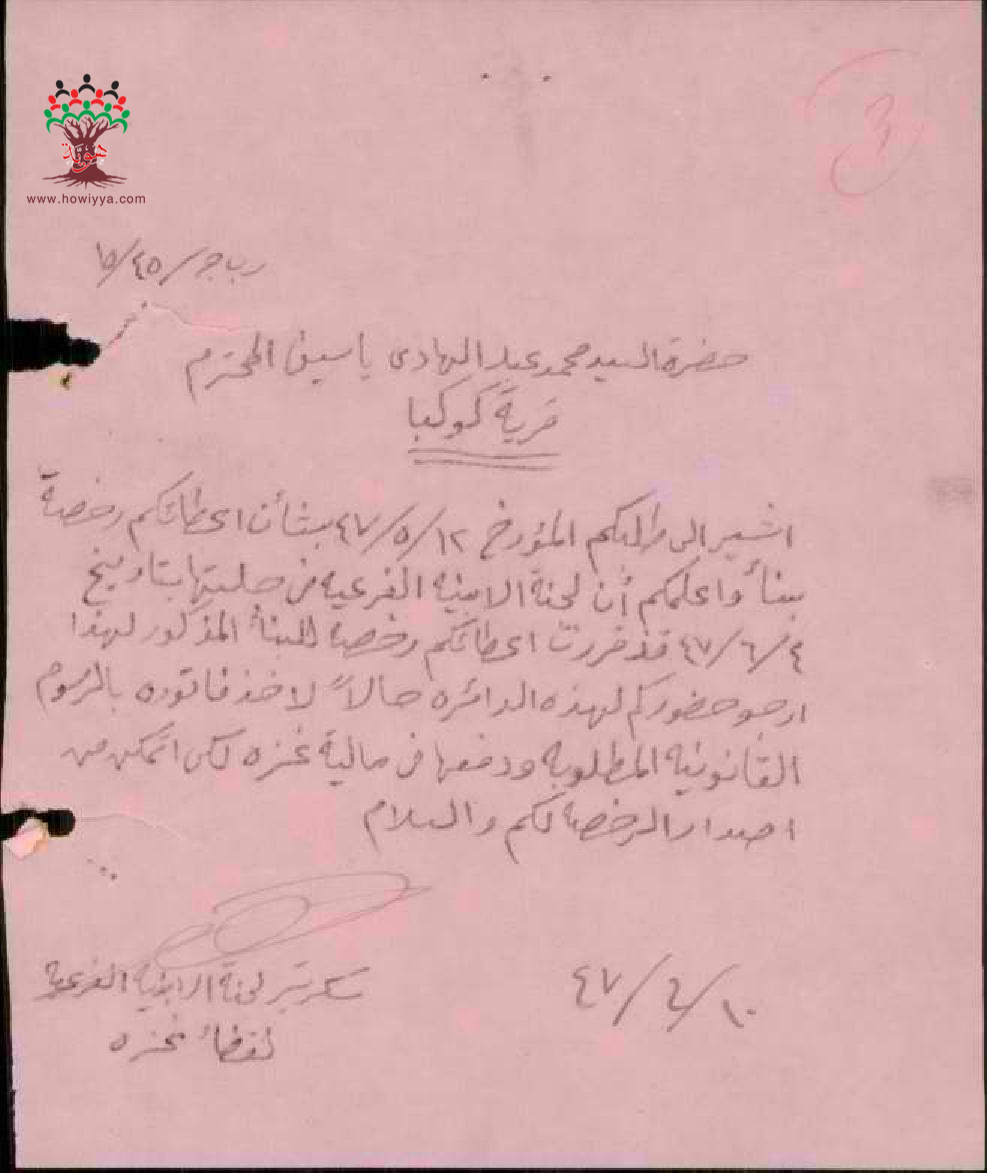 هوية
www.howiyya.com
3
ر ب ج/٤٥/١٥
حضرة السيد محمد عبد الهادى ياسين المحترم
قرية كوكبا
اشير الى طلبكم المؤرخ ٤٧/٥/١٢ بشأن اعطائكم رخصة
بناء واعلمكم أن لجنة الابنية الفرعية في جلستها بتاريخ
٤٧/٦/٤ قد قررت اعطائكم رخصة للبناء المذكور لهذا
ارجو حضوركم لهذه الدائره حالاً لاخذ فاتوره بالرسوم
القانونية المطلوبة ودفعها في مالية غزه لكى اتمكن من
اصدار الرخصة لكم والسلام
سكرتير لجنة الابنية الفرعية
لقضاء غزه
٤٧/٦/١٠